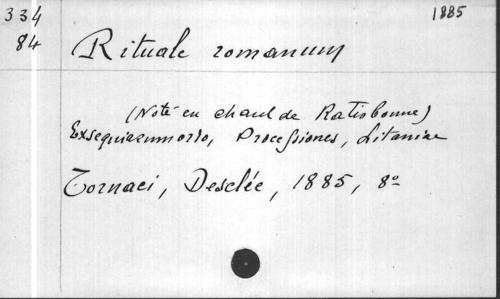 334
84
1885
Rituale romanum
(Noté en chant de Ratisbonne)
Exsequiarum ordo, Processiones, Litaniae
Tornaci, Desclée, 1885, 8º